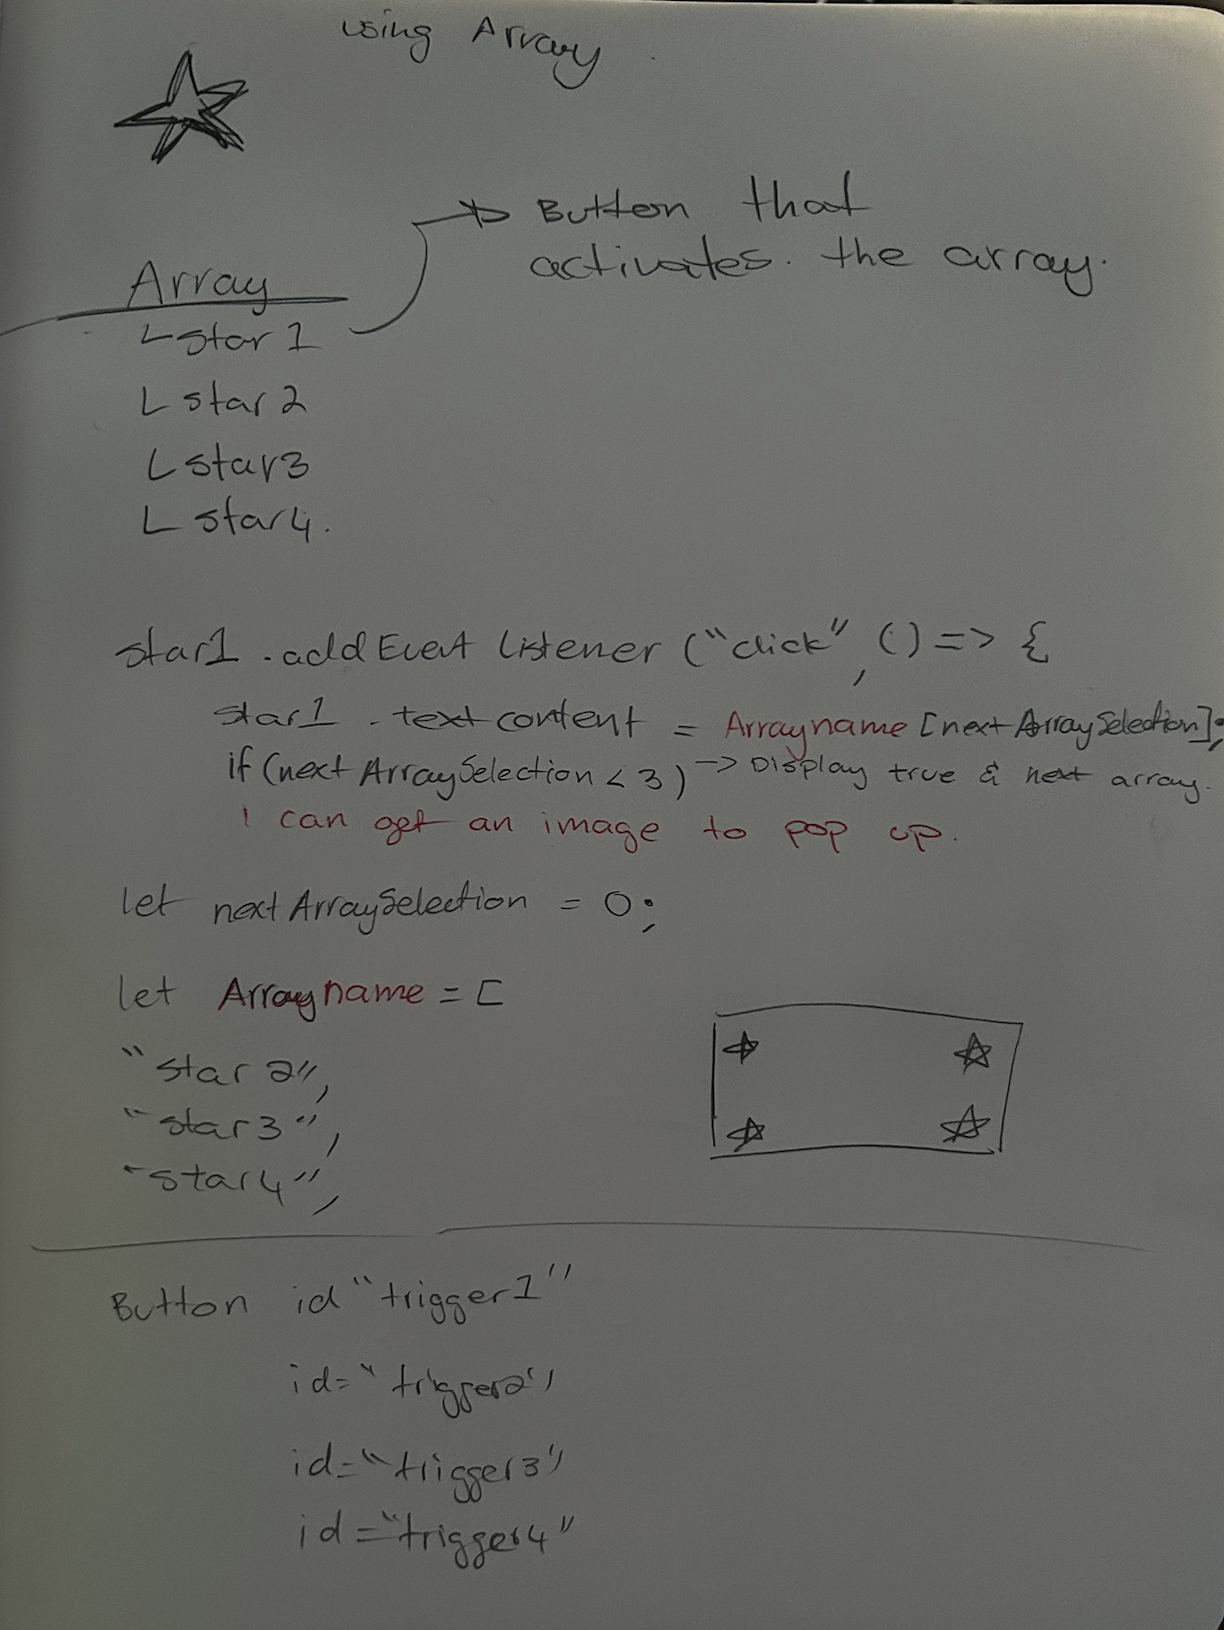 using Array.
Button that
activates. the array.
Array
L star 1
L star 2
L star3
L star4.
star1 .addEvent Listener ("click", () => {
star1 .text content = Arrayname [next ArraySelection];
if (next ArraySelection < 3) -> Display true & next array.
I can get an image to pop up.
let next ArraySelection = 0;
let Arrayname = [
"star 2",
"star3",
"star4",
Button id "trigger1"
id="trigger2"
id="trigger3"
id="trigger4"